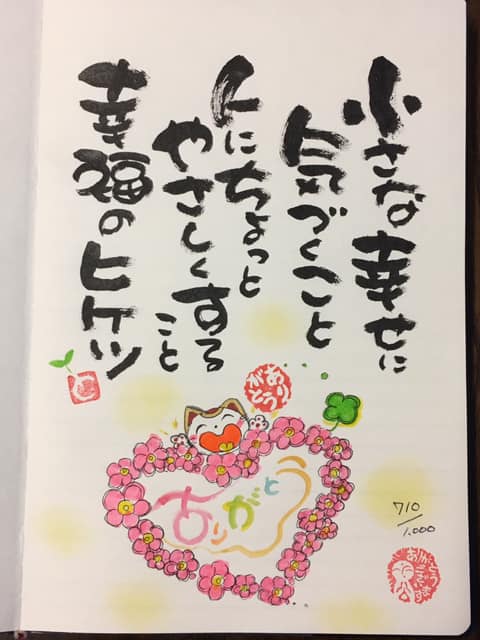 小さな幸せに
気づくこと
人にちょっと
やさしくする
こと
幸福のヒケツ
ありがとう
ありがとう
710/1.000
ありがとうございます